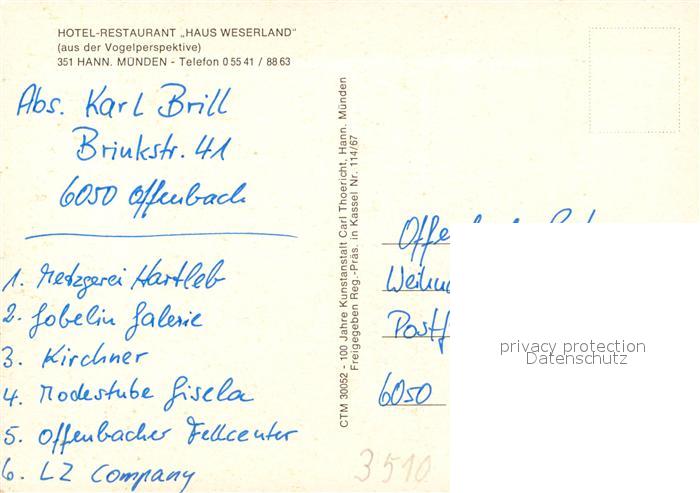 HOTEL-RESTAURANT „HAUS WESERLAND"
(aus der Vogelperspektive)
351 HANN. MÜNDEN - Telefon 0 55 41 / 88 63
Abs. Karl Brill
Brinkstr. 41
6050 Offenbach
1. Metzgerei Hartleb
2. Gobelin Galerie
3. Kirchner
4. Modestube Gisela
5. Offenbacher Fellcenter
6. LZ Company
CTM 30052 - 100 Jahre Kunstanstalt Carl Thoericht, Hann. Münden
Freigegeben Reg.-Präs. in Kassel Nr. 114/67
6050
privacy protection
Datenschutz
3510